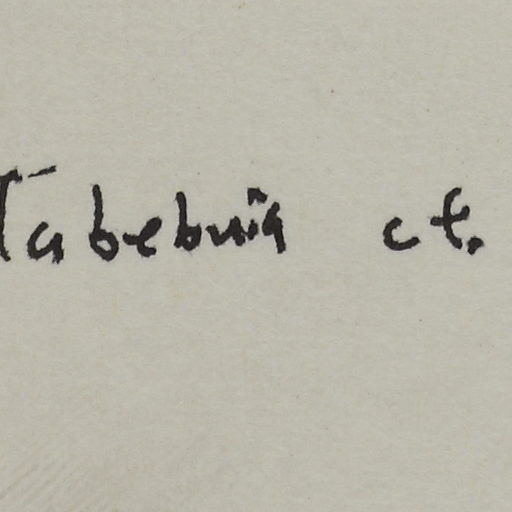 Tabebuia cf.